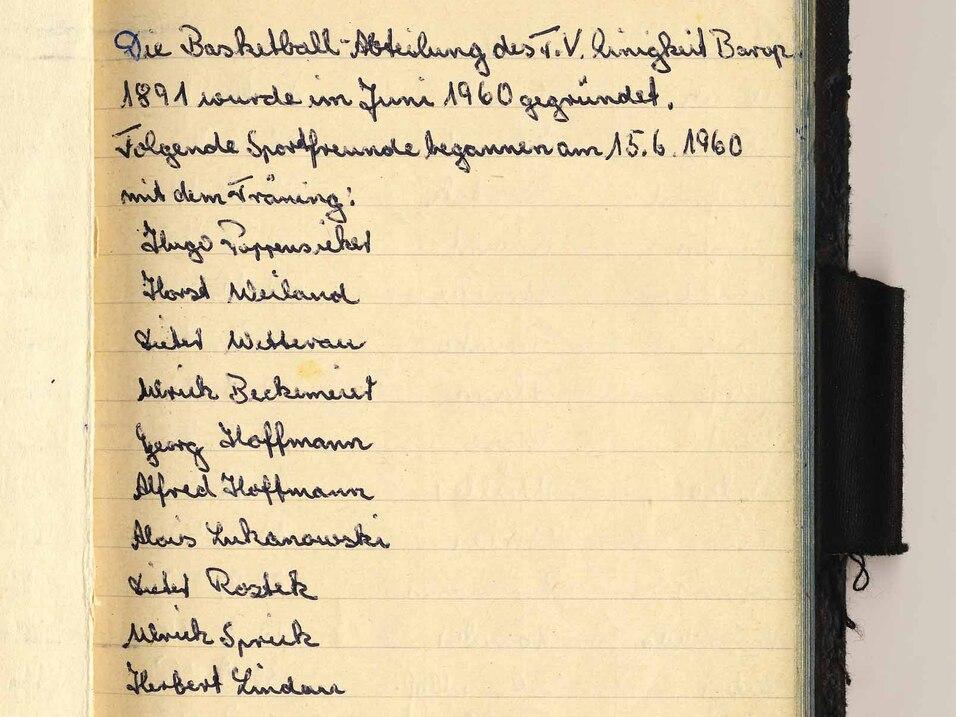 Die Basketball-Abteilung des T.V. Einigkeit Barop
1891 wurde im Juni 1960 gegründet.
Folgende Sportfreunde begannen am 15.6.1960
mit dem Träning:
Hugo Poppensieker
Horst Weiland
Dieter Wetterau
Ulrich Beckemeier
Georg Hoffmann
Alfred Hoffmann
Alois Lukanowski
Dieter Rostek
Ulrich Sprick
Herbert Lindau